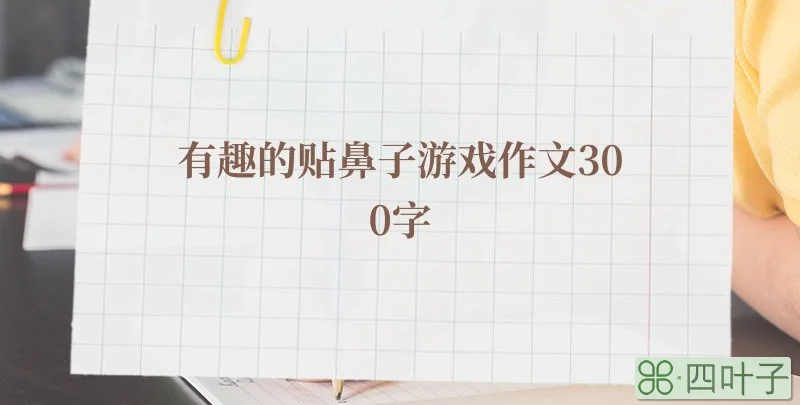 有趣的贴鼻子游戏作文30
0字
四叶子